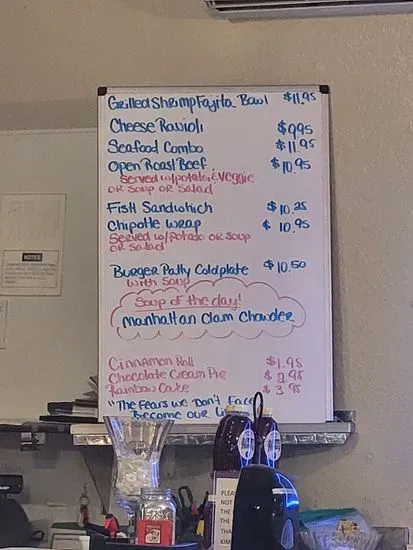 Grilled Shrimp Fajita Bowl $11.95
Cheese Ravioli $9.95
Seafood Combo $11.95
Open Roast Beef $10.95
Served w/potato & Veggie
or Soup or Salad
Fish Sandwhich $10.25
Chipotle Wrap $10.95
Served w/Potato or Soup
or Salad
Burger Patty Coldplate $10.50
with Soup
Soup of the day!
Manhattan Clam Chowder
Cinnamon Roll $1.95
Chocolate Cream Pie $2.95
Rainbow Cake $3.95
"The Fears we Don't Face
Become our
NOTICE
PLEA
NOT
THE
THE
THA
KIM